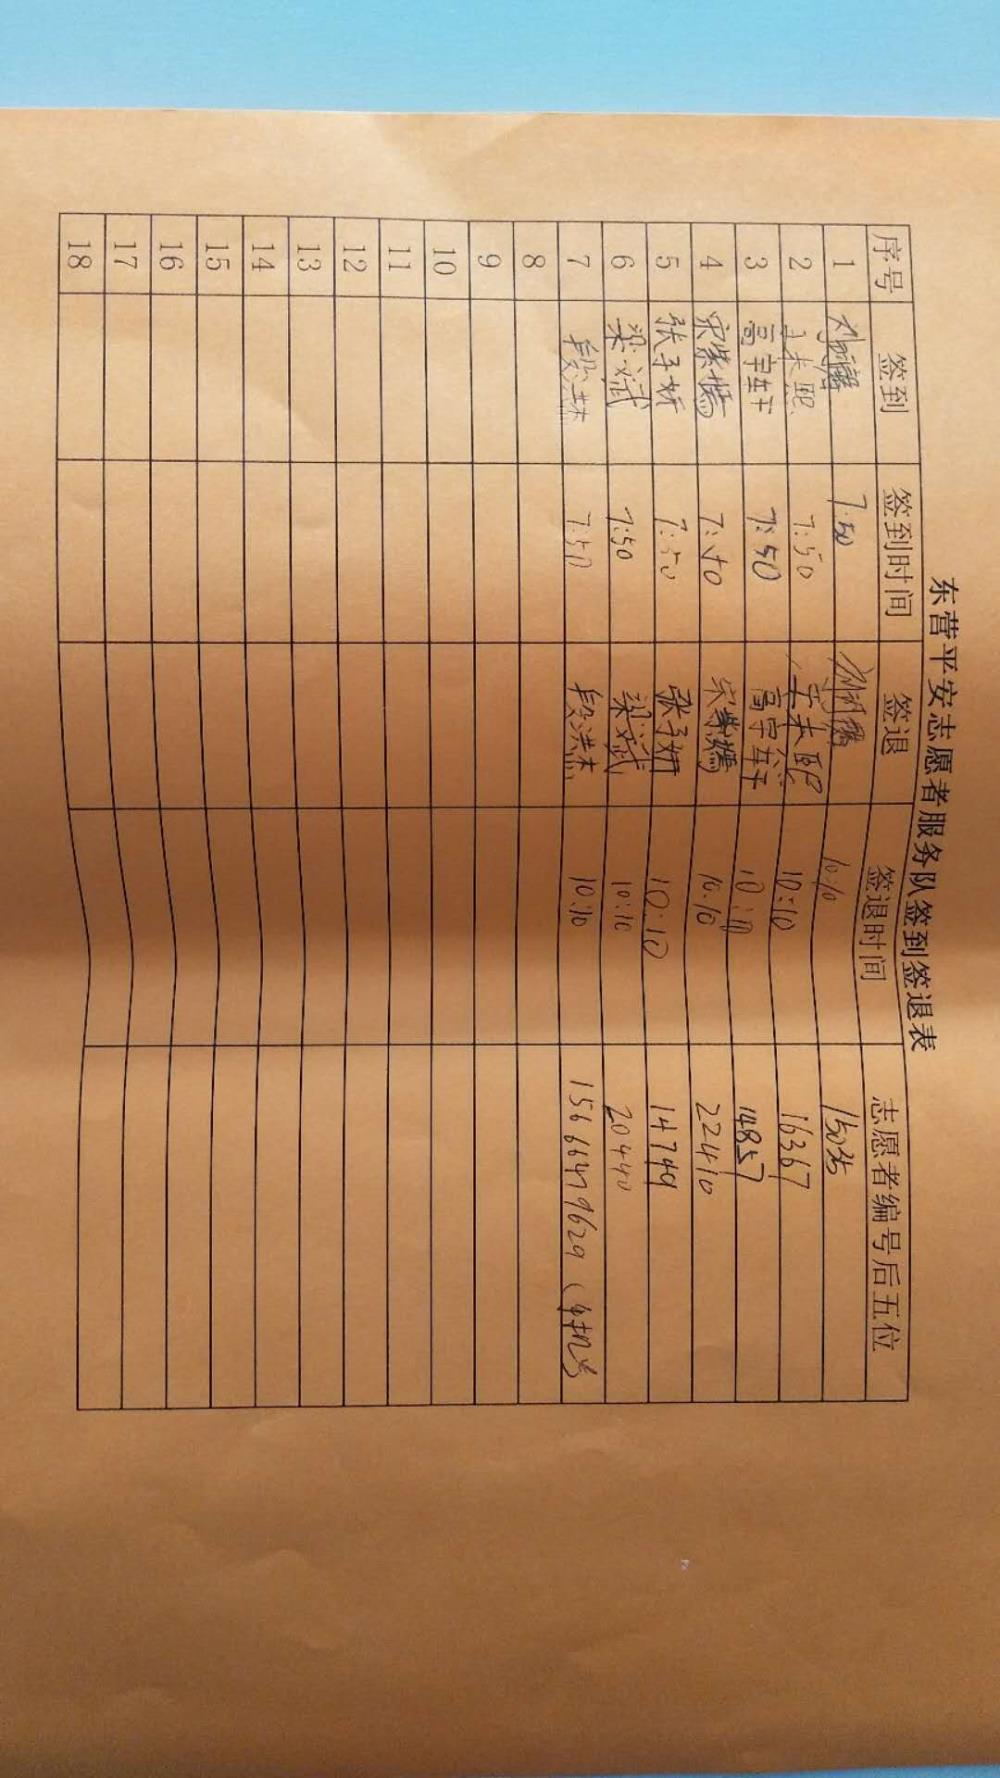 东营平安志愿者服务队签到签退表
序号 签到 签到时间 签退 签退时间 志愿者编号后五位
1 7:50 10:10
2 7:50 10:10 16367
3 高宇轩 7:50 高宇轩 10:10 14857
4 宋紫嫣 7:50 宋紫嫣 10:10 22410
5 张子妍 7:50 张子妍 10:10 14749
6 梁斌 7:50 梁斌 10:10 20440
7 段洪杰 7:50 段洪杰 10:10 (手机号
8
9
10
11
12
13
14
15
16
17
18